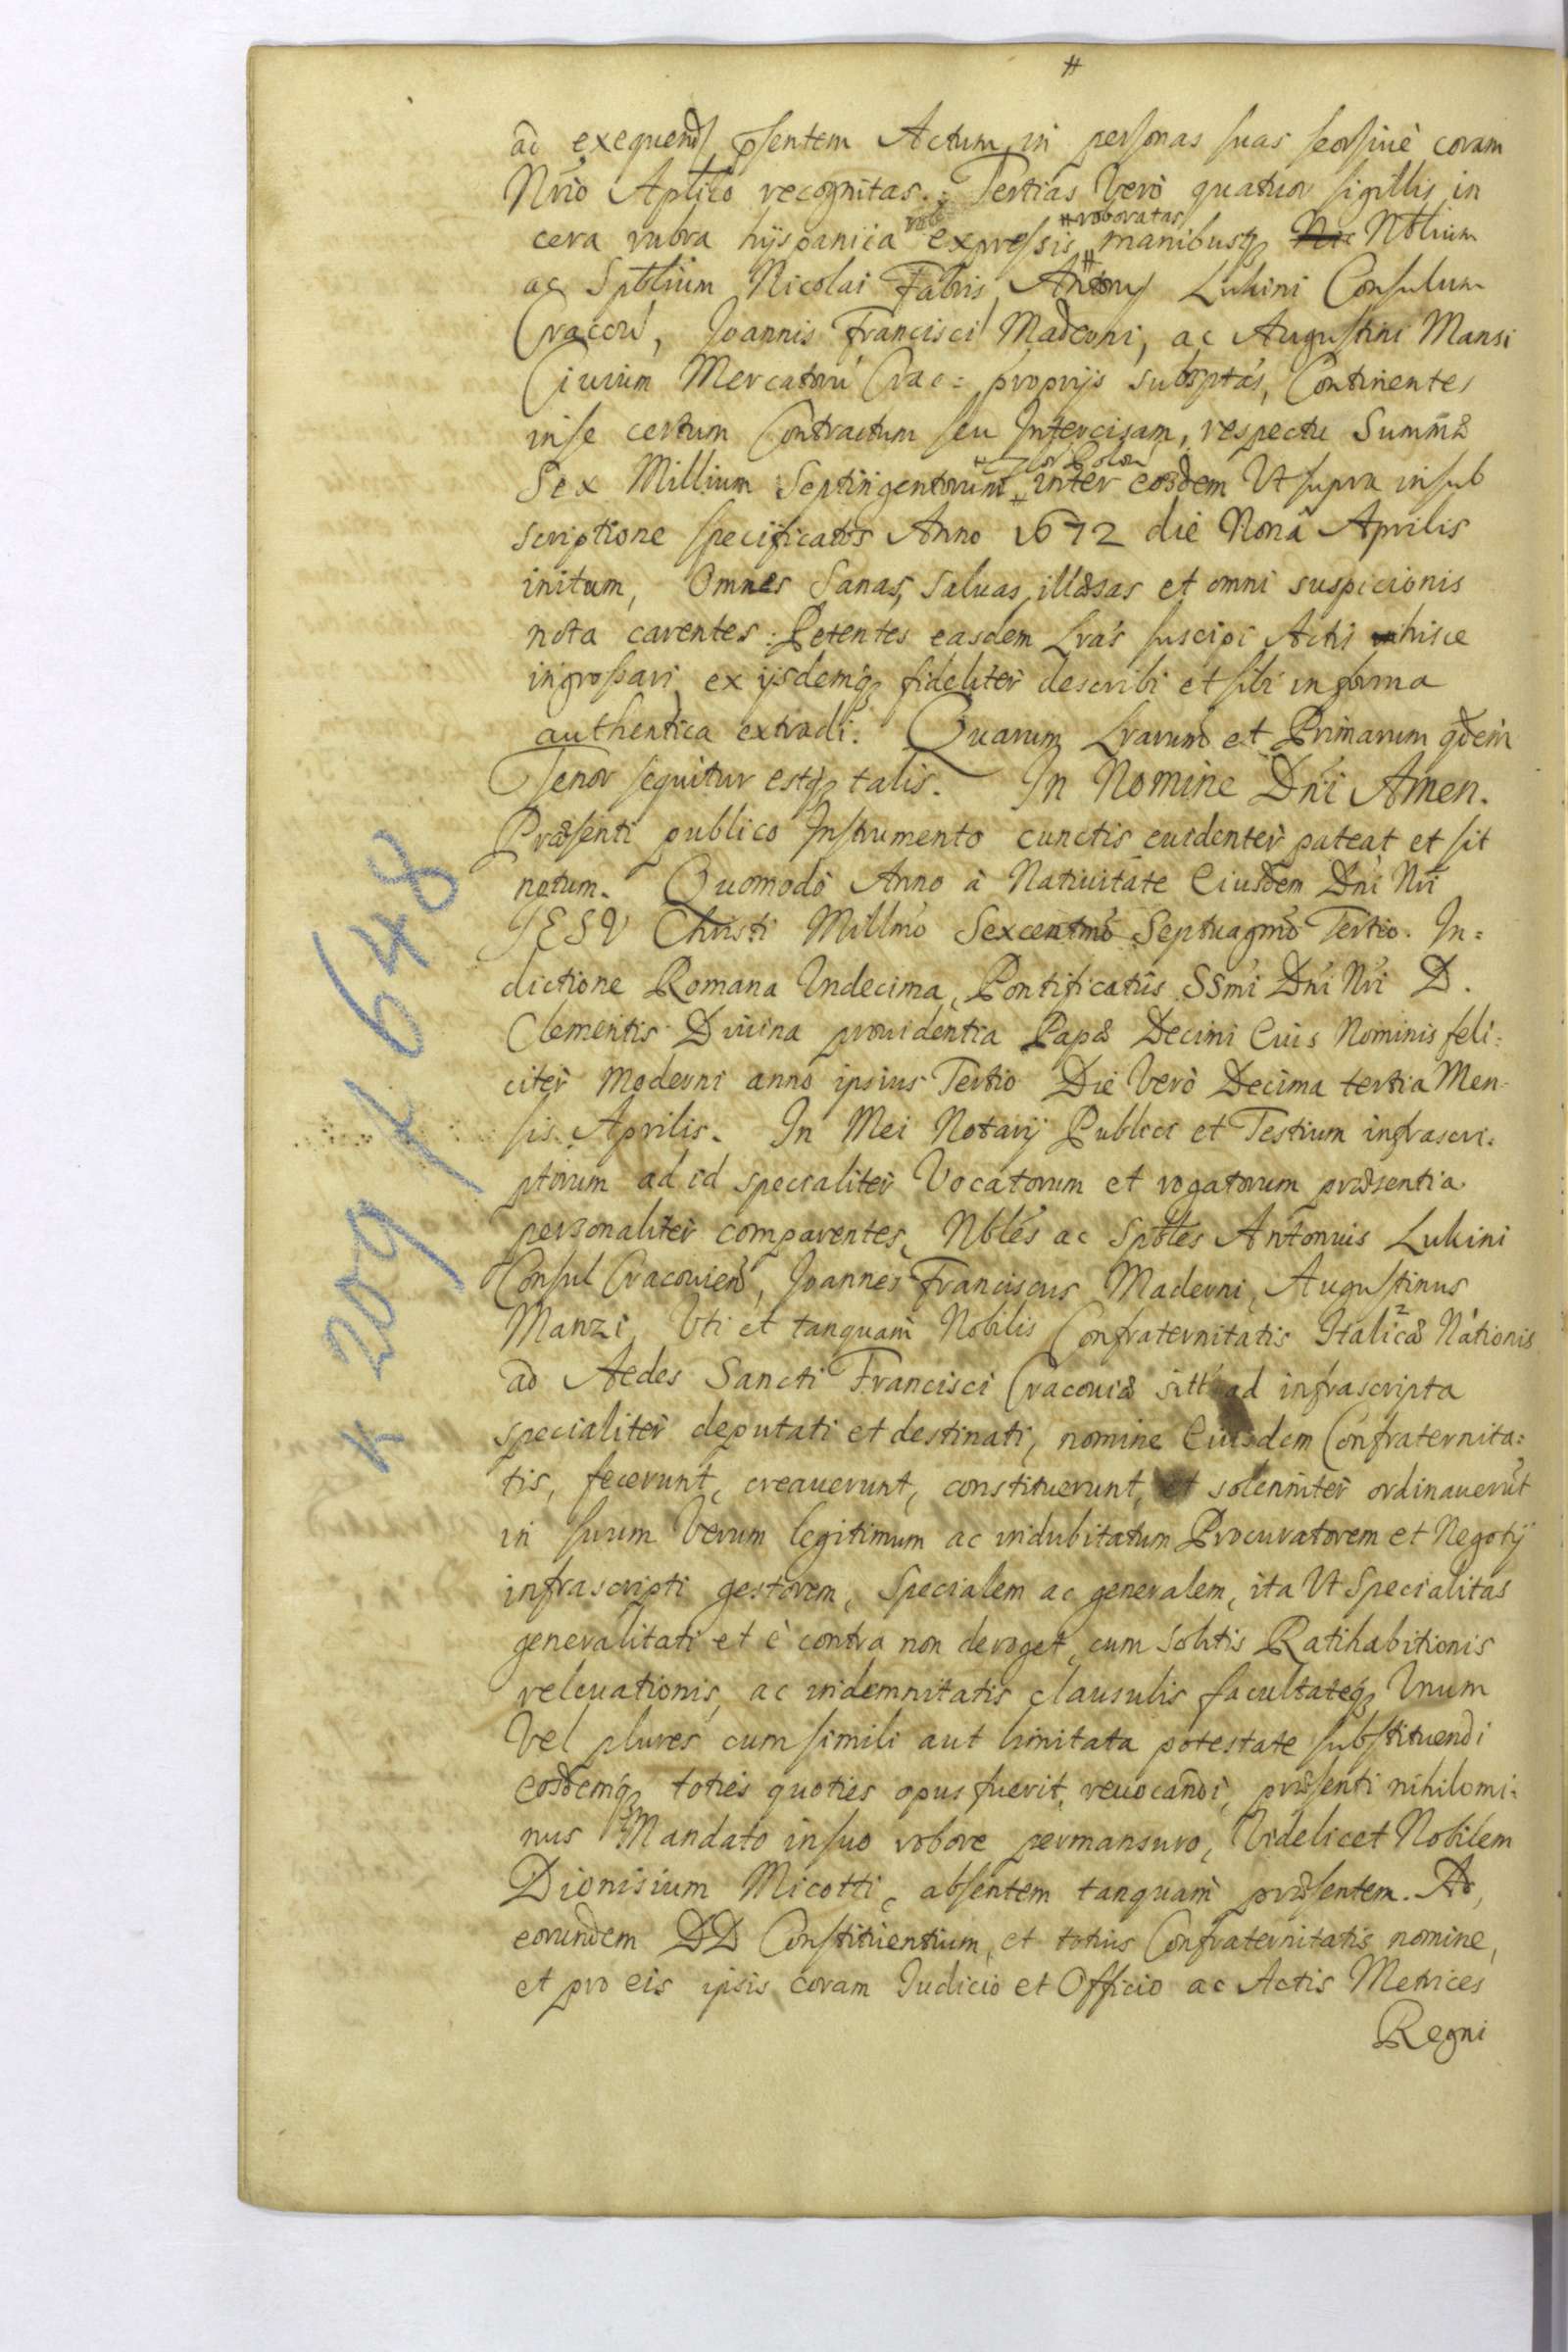 ad exequend psentem Actum in personas suas seorsivè coram
Nrio Aplico recognitas. Tertias Verò quatuor sigillis in
cera rubra hyspanica expressis # roboratas manibusq Nblium
ac Sptlium Nicolai Fabris, Antony Lukini Consulum
Cracou, Joannis Francisci Maderni, ac Augustini Mansi
Ciuium Mercatoru Crac: proprijs subsptas, Continentes
in se certum Contractum seu Intercisam, respectu Summæ
Sex Millium Septingentorum # flor Polon inter eosdem Ut supra in sub
scriptione specificatos Anno 1672 die Nonâ Aprilis
initum, Omnes Sanas, saluas, illæsas et omni suspicionis
nota carentes: Petentes easdem Lras suscipi Actis hisce
ingrossari, ex ijsdemq fideliter describi et sibi in forma
authentica extradi. Quarum Lrarum et Primarum qdem
Tenor sequitur estq talis. In Nomine Dni Amen.
Præsenti publico Instrumento cunctis euidenter pateat et sit
notum. Quomodò Anno à Natiuitate Eiusdem Dni Nri
JESV Christi Millmo Sexcentmo Septuagmo Tertio. In=
dictione Romana Undecima, Pontificatûs SSmi Dni Nri D.
Clementis Diuina prouidentia Papæ Decimi Eius Nominis feli:
citer moderni anno ipsius Tertio Die Verò Decima tertia Men-
sis Aprilis. In Mei Notarij Publici et Testium infrascri:
ptorum ad id specialiter Vocatorum et rogatorum præsentia
personaliter comparentes, Nbles ac Sptbles Antonius Lukini
Consul Cracouien, Joannes Franciscus Maderni, Augustinus
Manzi, Uti et tanquam Nobilis Confraternitatis Italicæ Nationis
ad Aedes Sancti Francisci Cracouiæ sitt ad infrascripta
specialiter deputati et destinati, nomine Eiusdem Confraternita:
tis, fecerunt, creauerunt, constituerunt, et solenniter ordinauerut
in suum Verum legitimum ac indubitatum Procuratorem et Negotij
infrascripti gestorem, Specialem ac generalem, ita Ut Specialitas
generalitati et è contra non deroget, cum solitis Ratihabitionis
releuationis, ac indemnitatis clausulis facultateq Unum
Vel plures cum simili aut limitata potestate substituendi
eosdemq toties quoties opus fuerit, reuocandi, præsenti nihilomi:
nus Mandato in suo robore permansuro, Videlicet Nobilem
Dionisium Micotti, absentem tanquam præsentem. Ad
eorundem DD Constituentium, et totius Confraternitatis nomine,
et pro eis ipsis coram Iudicio et Officio ac Actis Metrices
Regni
K 209 f 648